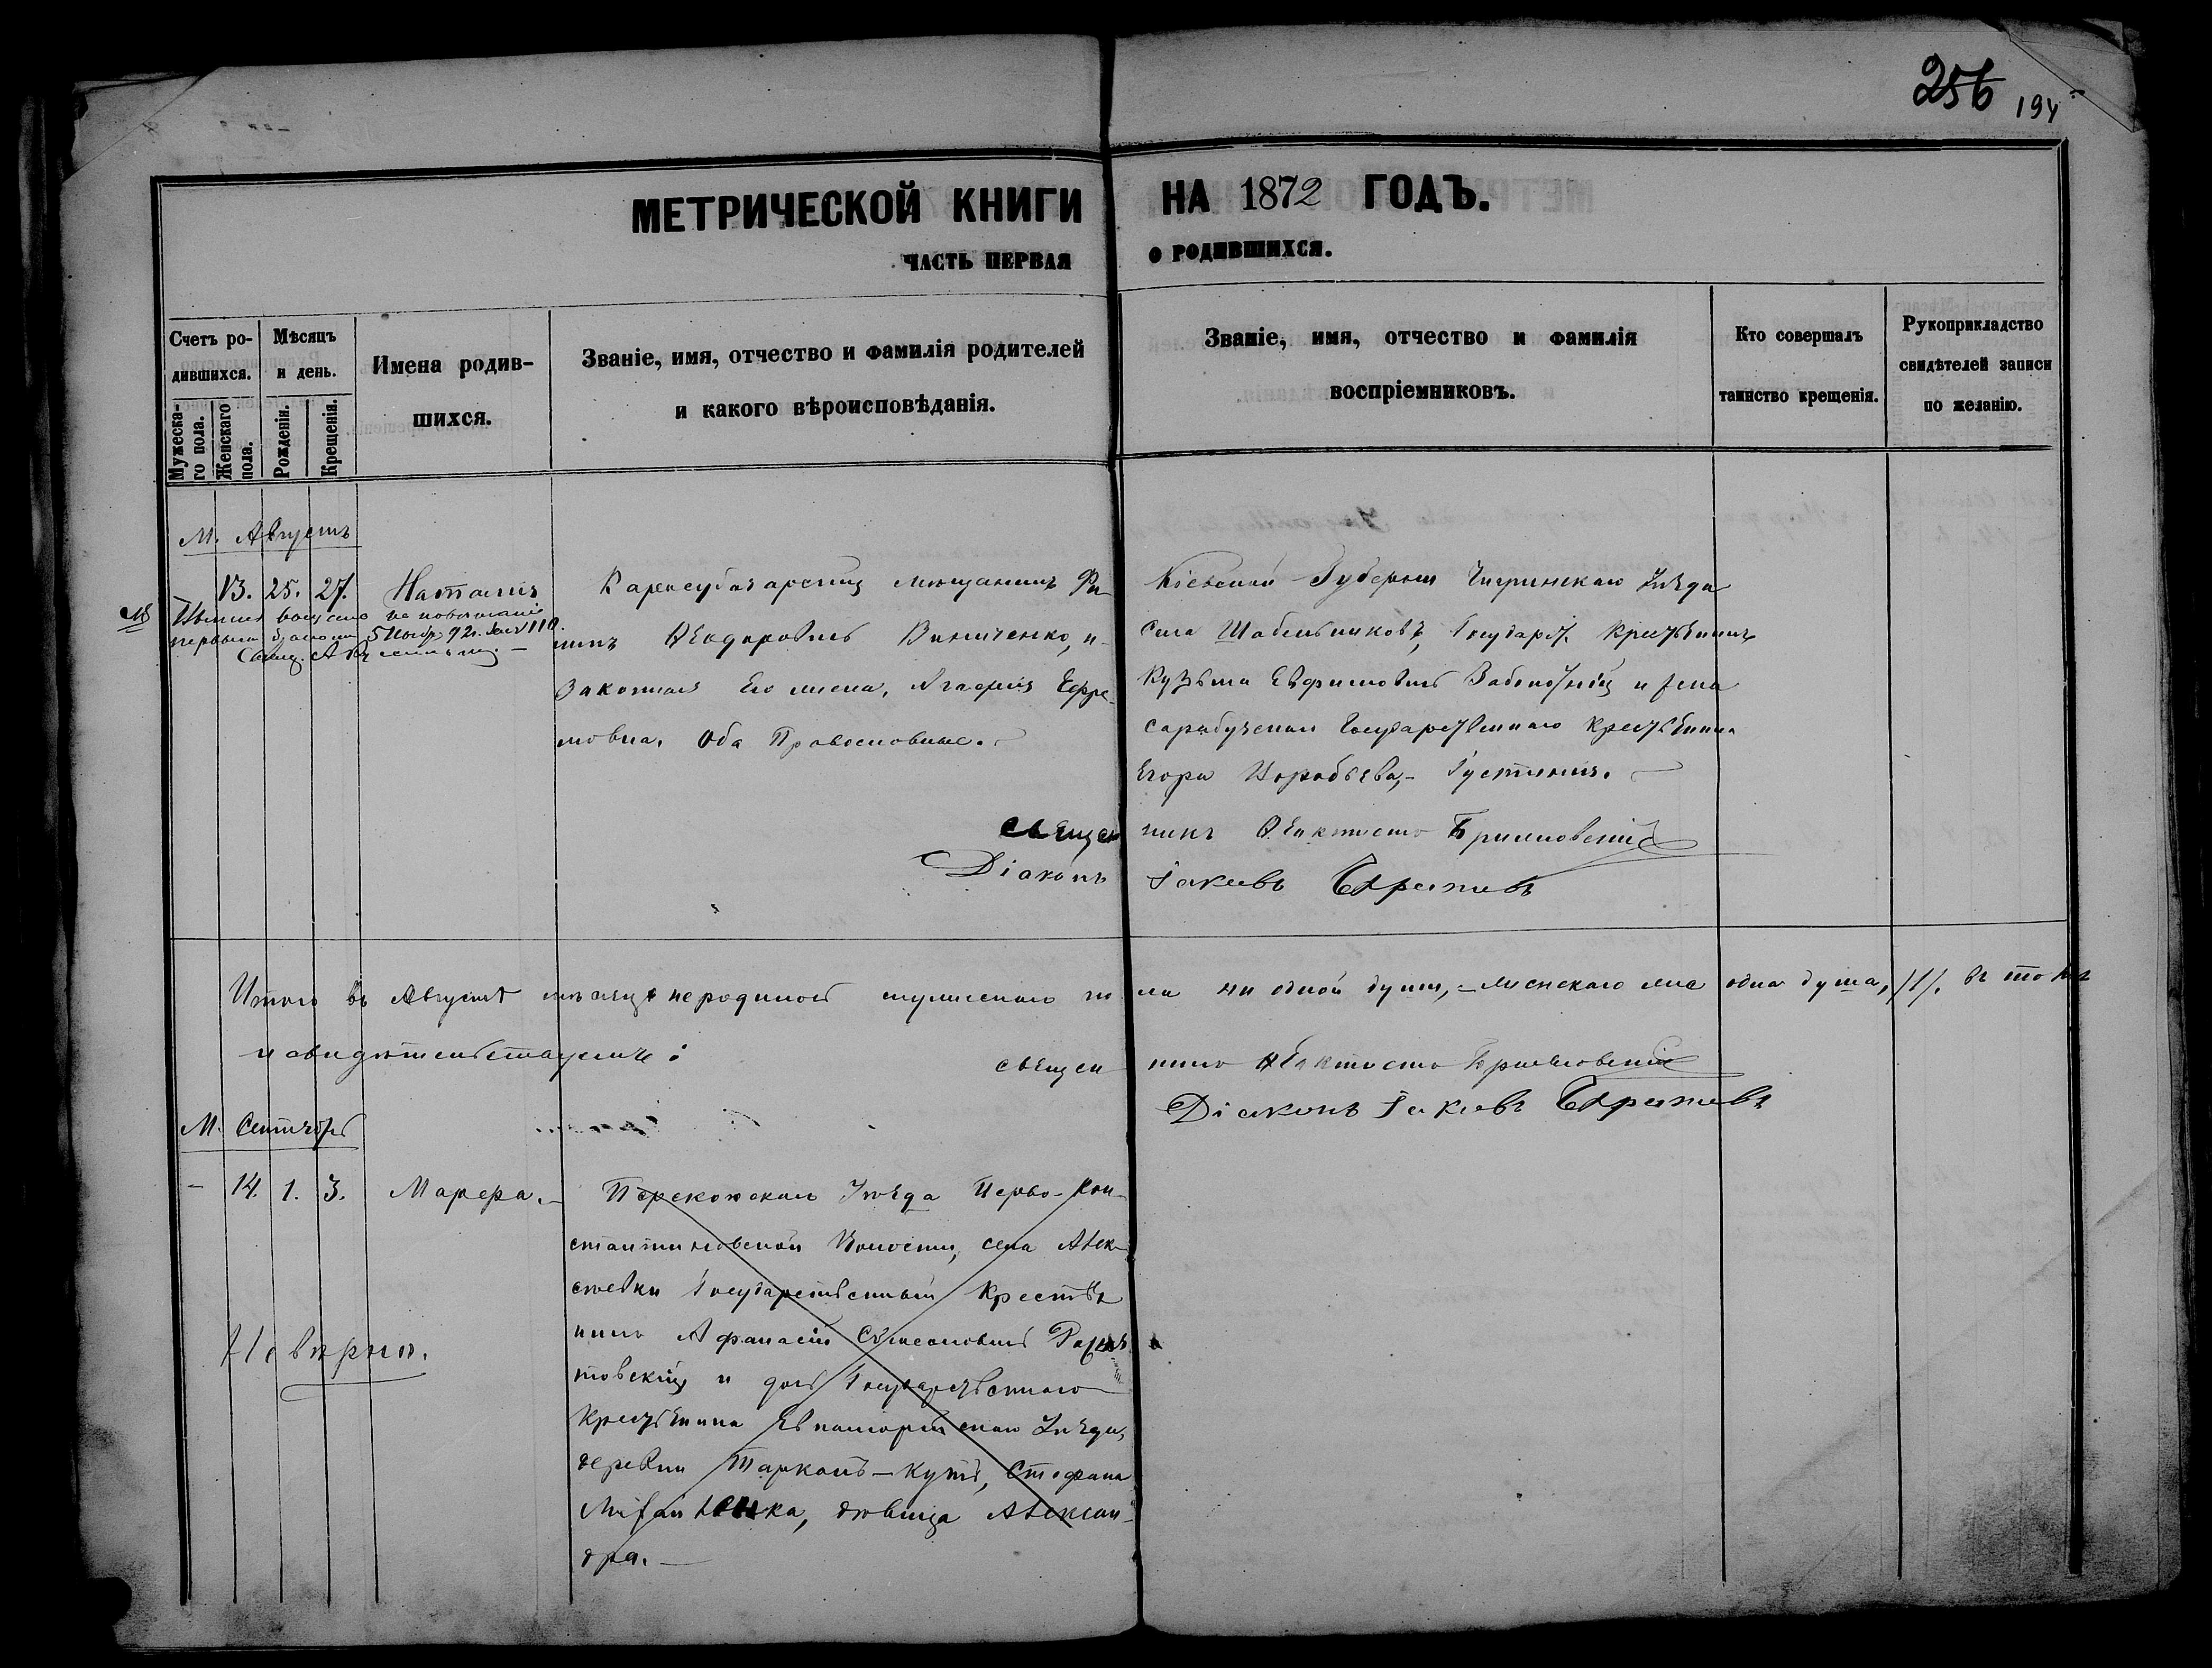 256 194
МЕТРИЧЕСКОЙ КНИГИ НА 1872 ГОДЪ.
ЧАСТЬ ПЕРВАЯ О РОДИВШИХСЯ.
Счетъ ро-
дившихся.
Мужеска-
го пола.
Женскаго
пола.
Мѣсяцъ
и день.
Рожденія.
Крещенія.
Имена родив-
шихся.
Званіе, имя, отчество и фамилія родителей
и какого вѣроисповѣданія.
Званіе, имя, отчество и фамилія
воспріемниковъ.
Кто совершалъ
таинство крещенія.
Рукоприкладство
свидѣтелей записи
по желанію.
М. Августъ
13. 25. 27. Наталія
первымъ бракомъ 5 Ноябр. 92 г. 110.
Карасубазарскій мѣщанинъ Фи-
липъ Ѳеодоровичъ Винниченко, и
законная его жена, Агафія Ефре-
мовна. Оба Православные.
Кіевской Губерніи Чигринскаго Уѣзда
Села Шабельниковъ, Государст. Крестьянинъ
Кузьма Евфимовичъ и жена
сарабузскаго Государственнаго Крестьянина
Егора Воробьева, Іустинія.
Священникъ Ѳеоктистъ
Діаконъ Іаковъ
Итого въ Августѣ мѣсяцѣ не родилось мужескаго пола ни одной души, – женскаго пола одна душа, /1/. въ томъ
и свидѣтельствуемъ:
священникъ Ѳеоктистъ
Діаконъ Іаковъ
М. Сентябрь
- 14. 1. 3. Марѳа.
Невѣрно.
Перекопскаго Уѣзда Перво-Кон-
стантиновской Волости, села Алек-
сѣевки Государственный Крестья
нинъ Афанасій Симеоновичъ
товскій и дочь Государственнаго
Крестьянина Евпаторійскаго Уѣзда,
деревни Тарханъ-Кутъ, Стефана
дѣвица Алексан-
дра.